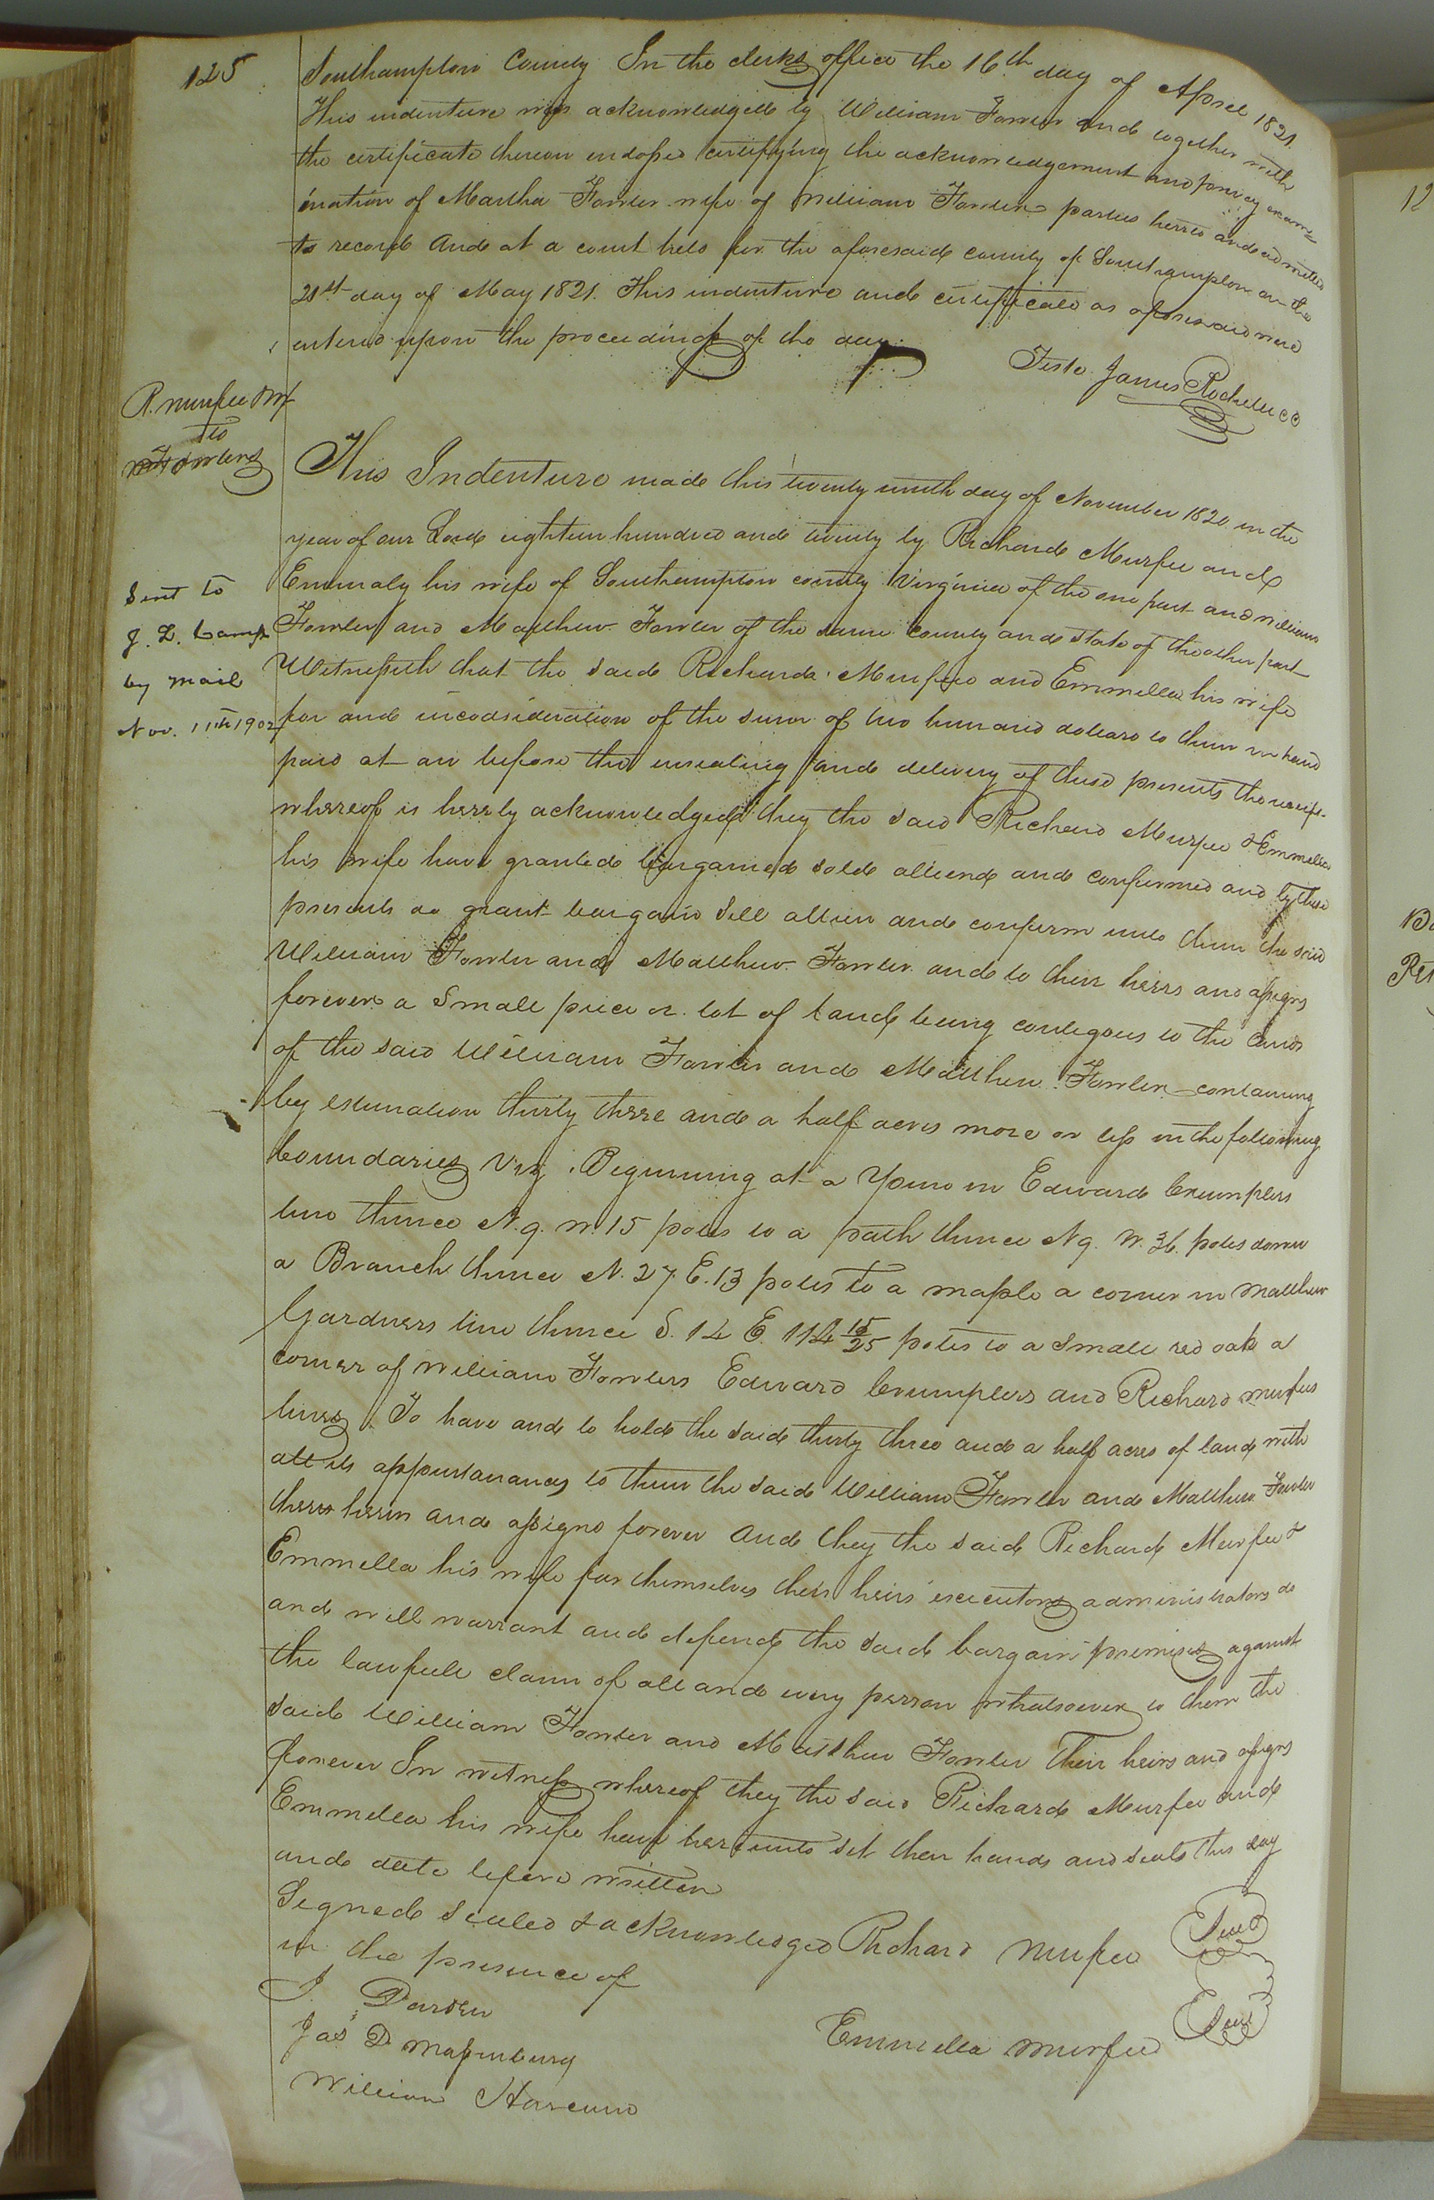 125
Southampton County In the clerks office the 16th day of April 1821.
This indenture was acknowledged by William Fowler and together with
the certificate thereon endorsed certifying the acknowledgement and privey exam-
ination of Martha Fowler wife of William Fowler parties hereto and admitted
to record And at a court held for the aforesaid county of Southampton on the
21st day of May 1821. This indenture and certificate as aforesaid were
entered upon the proceedings of the day.
Teste. James Rochelle CC
R. Murfee & wf
To
Fowlers
Sent to
J. L. Camp
by mail
Nov. 11th 1902
This Indenture made this twenty ninth day of November 1820 in the
year of our Lord eighteen hundred and twenty by Richard Murfee and
Emmaly his wife of Southampton county Virginia of the one part and William
Fowler and Matthew Fowler of the same County and state of the other part
Witnesseth that the said Richard Murfee and Emmella his wife
for and in consideration of the sum of two hundred dollars to them in hand
paid at an before the unsealing and delivery of these presents the receipt
whereof is hereby acknowledged they the said Richard Murfee & Emmella
his wife have granted bargained sold aliend and confirmed and by these
presents do grant bargain sell alien and confirm unto them the said
William Fowler and Matthew Fowler and to their heirs and assigns
forever a small piece or lot of land being contigous to the lands
of the said William Fowler and Matthew Fowler containing
by estimation thirty three and a half acres more or less in the following
boundaries Viz. Beginning at a pine in Edward Crumplers
line thence N. 9. W. 15 poles to a path thence N 9. W. 36. poles down
a Branch thence N. 27. E. 13 poles to a maple a corner in Matthew
Gardners line thence S. 14 E. 114 15/25 poles to a small red oak a
corner of William Fowlers Edward Crumplers and Richard Murfees
lines. To have and to hold the said thirty three and a half acres of land with
all its appurtanances to them the said William Fowler and Matthew Fowler
there heirs and assigns forever and they the said Richard Murfee &
Emmella his wife for themselves their heirs executors administrators do
and will warrant and defend the said bargain premises against
the lawfull claim of all and every person whatsoever to them the
said William Fowler and Matthew Fowler their heirs and assigns
forever In witness whereof they the said Richard Murfee and
Emmella his wife have hereunto set their hands and seals this day
and date before written
Signed sealed & acknowledged Richard Murfee Seal
in the presence of
J. Darden
Emmella Murfee Seal
Jas D Massenburg
William Harcum